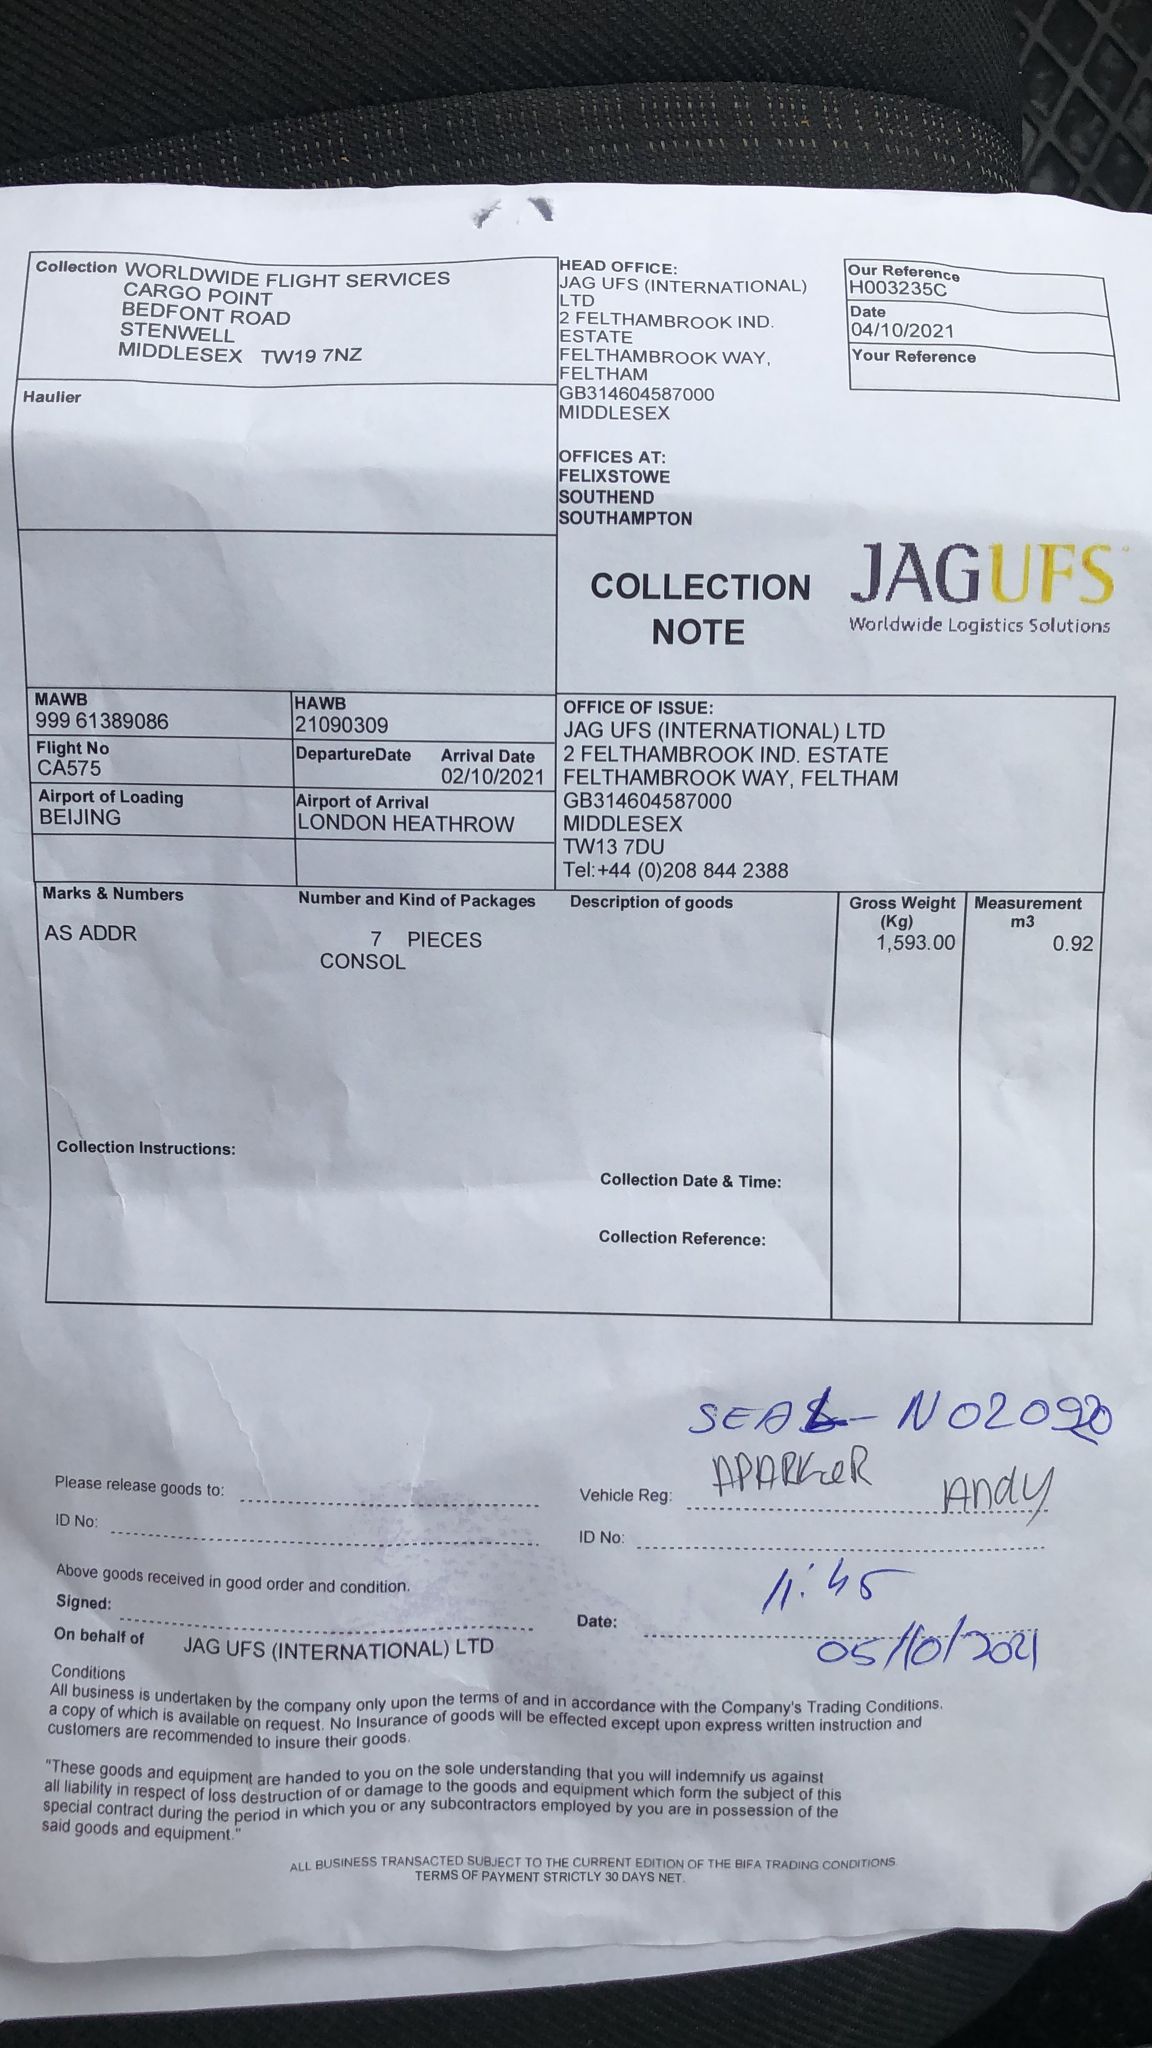 Collection WORLDWIDE FLIGHT SERVICES
CARGO POINT
BEDFONT ROAD
STENWELL
MIDDLESEX TW19 7NZ
Haulier
HEAD OFFICE:
JAG UFS (INTERNATIONAL)
LTD
2 FELTHAMBROOK IND.
ESTATE
FELTHAMBROOK WAY,
FELTHAM
GB314604587000
MIDDLESEX
OFFICES AT:
FELIXSTOWE
SOUTHEND
SOUTHAMPTON
Our Reference
H003235C
Date
04/10/2021
Your Reference
COLLECTION
NOTE
JAGUFS
Worldwide Logistics Solutions
MAWB
999 61389086
HAWB
21090309
Flight No
CA575
DepartureDate
Arrival Date
02/10/2021
Airport of Loading
BEIJING
Airport of Arrival
LONDON HEATHROW
OFFICE OF ISSUE:
JAG UFS (INTERNATIONAL) LTD
2 FELTHAMBROOK IND. ESTATE
FELTHAMBROOK WAY, FELTHAM
GB314604587000
MIDDLESEX
TW13 7DU
Tel:+44 (0)208 844 2388
Marks & Numbers
Number and Kind of Packages
Description of goods
Gross Weight
(Kg)
Measurement
m3
AS ADDR
7 PIECES
CONSOL
1,593.00
0.92
Collection Instructions:
Collection Date & Time:
Collection Reference:
SEAL - NO2090
APARKER Andy
Please release goods to:
Vehicle Reg:
ID No:
ID No:
Above goods received in good order and condition.
11:45
Signed:
Date:
05/10/2021
On behalf of JAG UFS (INTERNATIONAL) LTD
Conditions
All business is undertaken by the company only upon the terms of and in accordance with the Company's Trading Conditions.
a copy of which is available on request. No Insurance of goods will be effected except upon express written instruction and
customers are recommended to insure their goods.
"These goods and equipment are handed to you on the sole understanding that you will indemnify us against
all liability in respect of loss destruction of or damage to the goods and equipment which form the subject of this
special contract during the period in which you or any subcontractors employed by you are in possession of the
said goods and equipment."
ALL BUSINESS TRANSACTED SUBJECT TO THE CURRENT EDITION OF THE BIFA TRADING CONDITIONS
TERMS OF PAYMENT STRICTLY 30 DAYS NET.